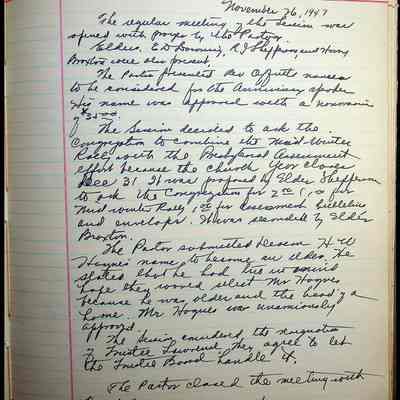 November 26, 1947
The regular meeting of the Session was
opened with prayer by the Pastor.
Elders, E.D. Downing, R.J. Shepperson, and Henry
Broxton were also present.
The Pastor presented Rev
to be considered for the Anniversary speaker
His name was approved with a honorarium
of
The Session decided to ask the
Congregation to combine the Mid-Winter
Rally with the Presbyterial Assessment
effort because the Church Year closes
Dec 31. It was proposed by Elder Shepperson
to ask the Congregation for 2.00 1.00 for
Mid-winter Rally 1.00 for assessment Bulletins
and envelops. It was seconded by Elder
Broxton.
The Pastor submitted Deacon H.W
name to become an elder. He
stated that he had
hope they would select Mr
because he was older and the head of a
home. Mr was unanimously
approved.
The Session considered the resignation
of Trustee they agree to let
the Trustee Board handle it.
The Pastor closed the meeting with